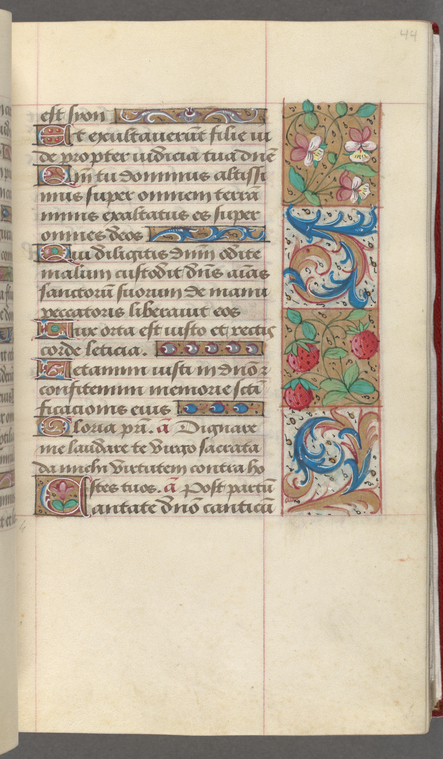 44
est syon
Et exultaverūt filie iu
de propter iudicia tua dn̄e
Qm̄ tu dominus altissi
mus super omnem terrā
nimis exaltatus es super
omnes deos
Qui diligitis dn̄m odite
malum custodit dn̄s aīas
sanctorū suorum de manu
peccatoris liberavit eos
Lux orta est iusto et rectis
corde leticia.
Letamini iusti in dn̄o et
confitemini memorie scīti
ficacionis eius
Gloria pr̄i. ā Dignare
me laudare te virgo sacrata
da michi virtutem contra ho
stes tuos. ā Post partū
Cantate dn̄o canticū